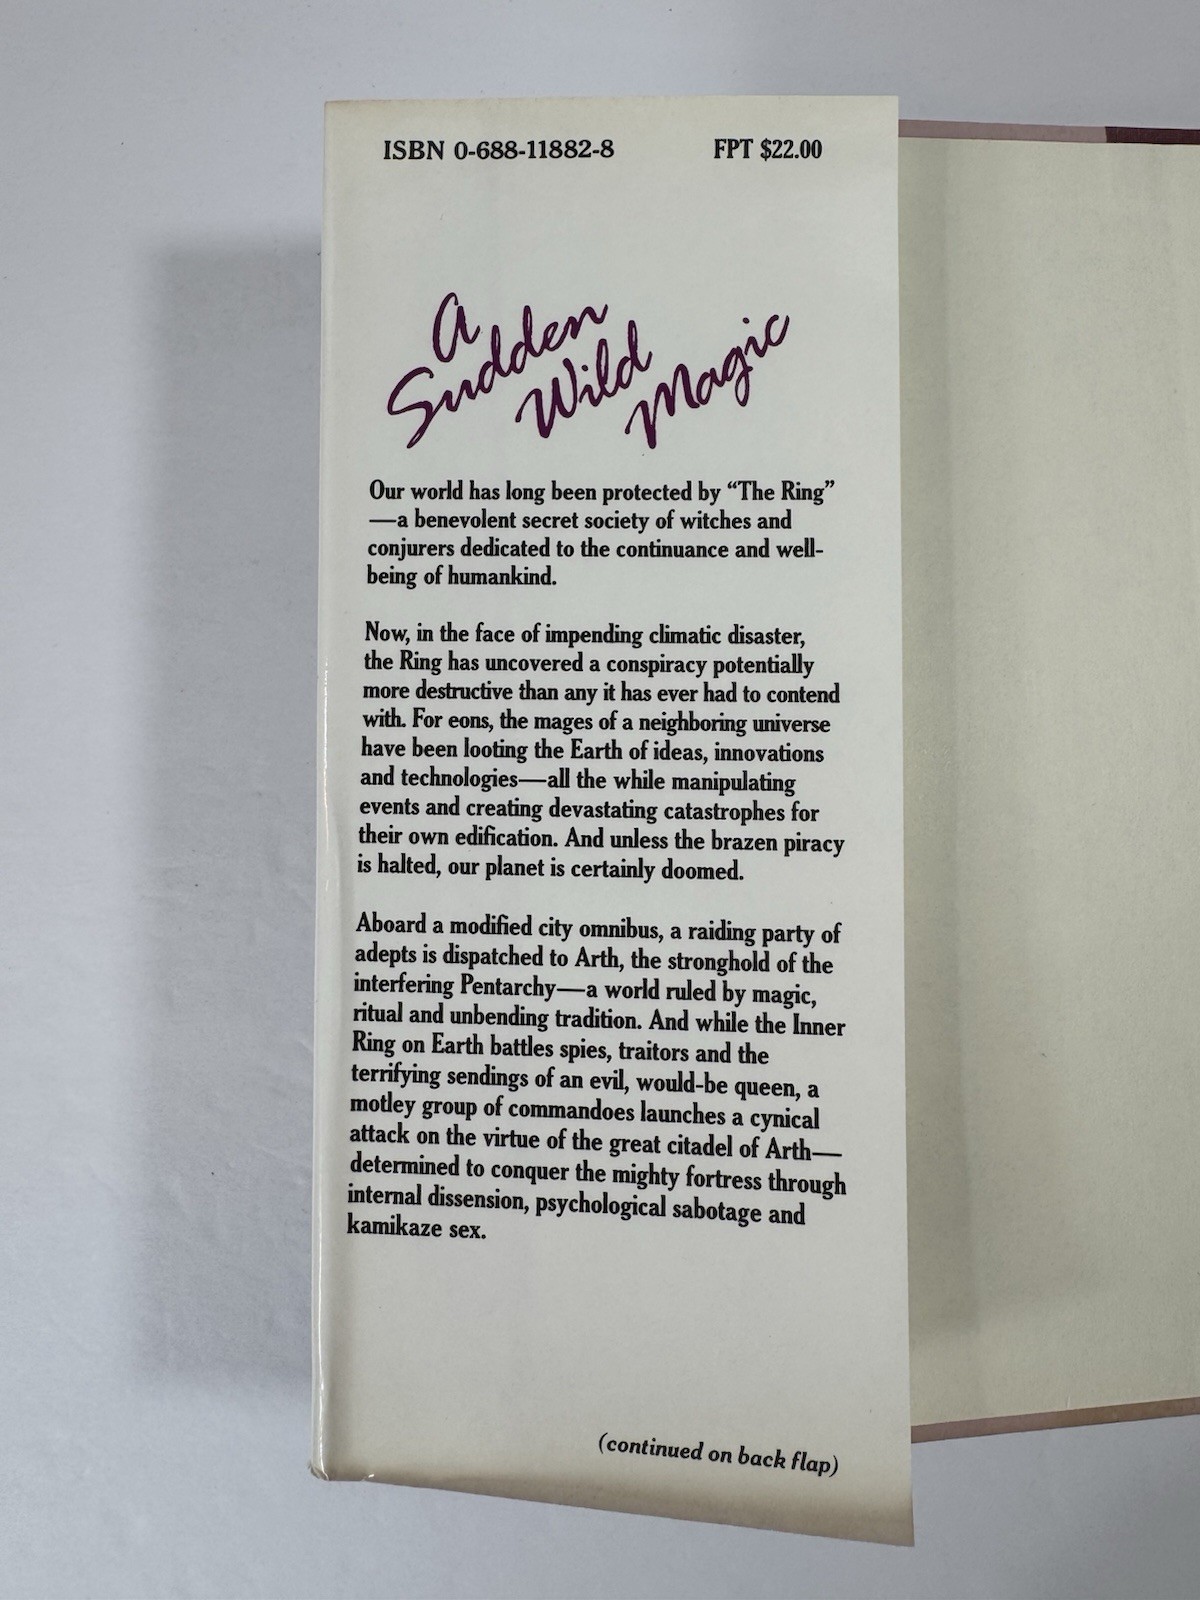 ISBN 0-688-11882-8 FPT $22.00
A
Sudden
Wild
Magic
Our world has long been protected by “The Ring”
—a benevolent secret society of witches and
conjurers dedicated to the continuance and well-
being of humankind.
Now, in the face of impending climatic disaster,
the Ring has uncovered a conspiracy potentially
more destructive than any it has ever had to contend
with. For eons, the mages of a neighboring universe
have been looting the Earth of ideas, innovations
and technologies—all the while manipulating
events and creating devastating catastrophes for
their own edification. And unless the brazen piracy
is halted, our planet is certainly doomed.
Aboard a modified city omnibus, a raiding party of
adepts is dispatched to Arth, the stronghold of the
interfering Pentarchy—a world ruled by magic,
ritual and unbending tradition. And while the Inner
Ring on Earth battles spies, traitors and the
terrifying sendings of an evil, would-be queen, a
motley group of commandoes launches a cynical
attack on the virtue of the great citadel of Arth—
determined to conquer the mighty fortress through
internal dissension, psychological sabotage and
kamikaze sex.
(continued on back flap)